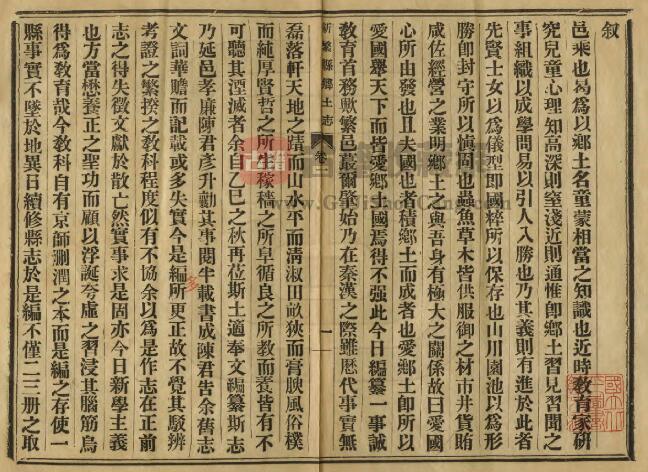 敘
邑乘也曷為以鄉土名童蒙相當之知識也近時教育家研
究兒童心理知高深則窒淺近則通惟卽鄉土習見習聞之
事組織以成學問易以引人入勝也乃其義則有進於此者
先賢士女以為儀型卽國粹所以保存也山川園池以為形
勝卽封守所以愼固也蟲魚草木皆供服御之材市井貨賄
咸佐經營之業明鄉土與吾身有極大之關係故曰愛國
心所由發也且夫國也者積鄉土而成者也愛鄉土卽所以
愛國舉天下而皆愛鄉土國焉得不强此今日編纂一事誠
教育首務歟繁邑蕞爾肇始乃在秦漢之際雖歷代事實無
新繁縣鄉土志
卷
一
磊落軒天地之蹟而山水平而淸淑田畝狹而膏腴風俗樸
而純厚賢哲之所生稼穡之所阜循良之所教而養皆有不
可聽其湮滅者余自乙巳之秋再莅斯土適奉文編纂斯志
乃延邑孝廉陳君彥升勷其事閱半載書成陳君告余舊志
文詞華贍而記載或多失實今是編所更正故不覺其駁辨
多
考證之繁揆之教科程度似有不協余以為是作志在正前
志之得失徵文獻於散亡然實事求是固亦今日新學主義
也方當懋養正之聖功而顧以浮誕夸虛之習浸其腦筋烏
得為教育哉今教科自有京師刪潤之本而是編之存使一
縣事實不墜於地異日續修縣志於是編不僅二三册之取